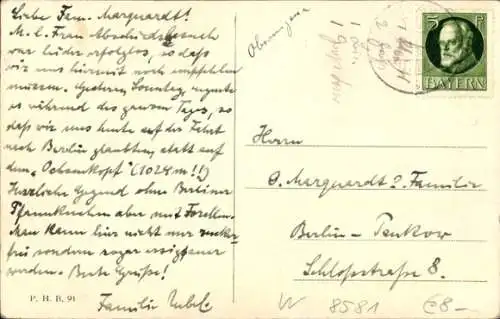 Liebe Fam. Marquardt!
M. l. Frau Abschiedsbesuch
war leider erfolglos, so daß
wir uns hiermit noch empfehlen
müssen. Gestern, Sonntag, regnete
es während des ganzen Tages, so
daß wir uns heute auf der Fahrt
nach Berlin glaubten, statt auf
den "Ochsenkopf" (1024 m!!)
Herrliche Gegend ohne Berliner
Pfannkuchen aber mit Forellen.
Man kann hier nicht nur zucker-
frei sondern sogar essigsauer
werden. Beste Grüße!
Familie
P. H. B. 91
1
1
5 P
BAYERN
Herrn
O. Marquardt & Familie
Berlin-Pankow
Schloßstraße 8.
W 8581 €8-